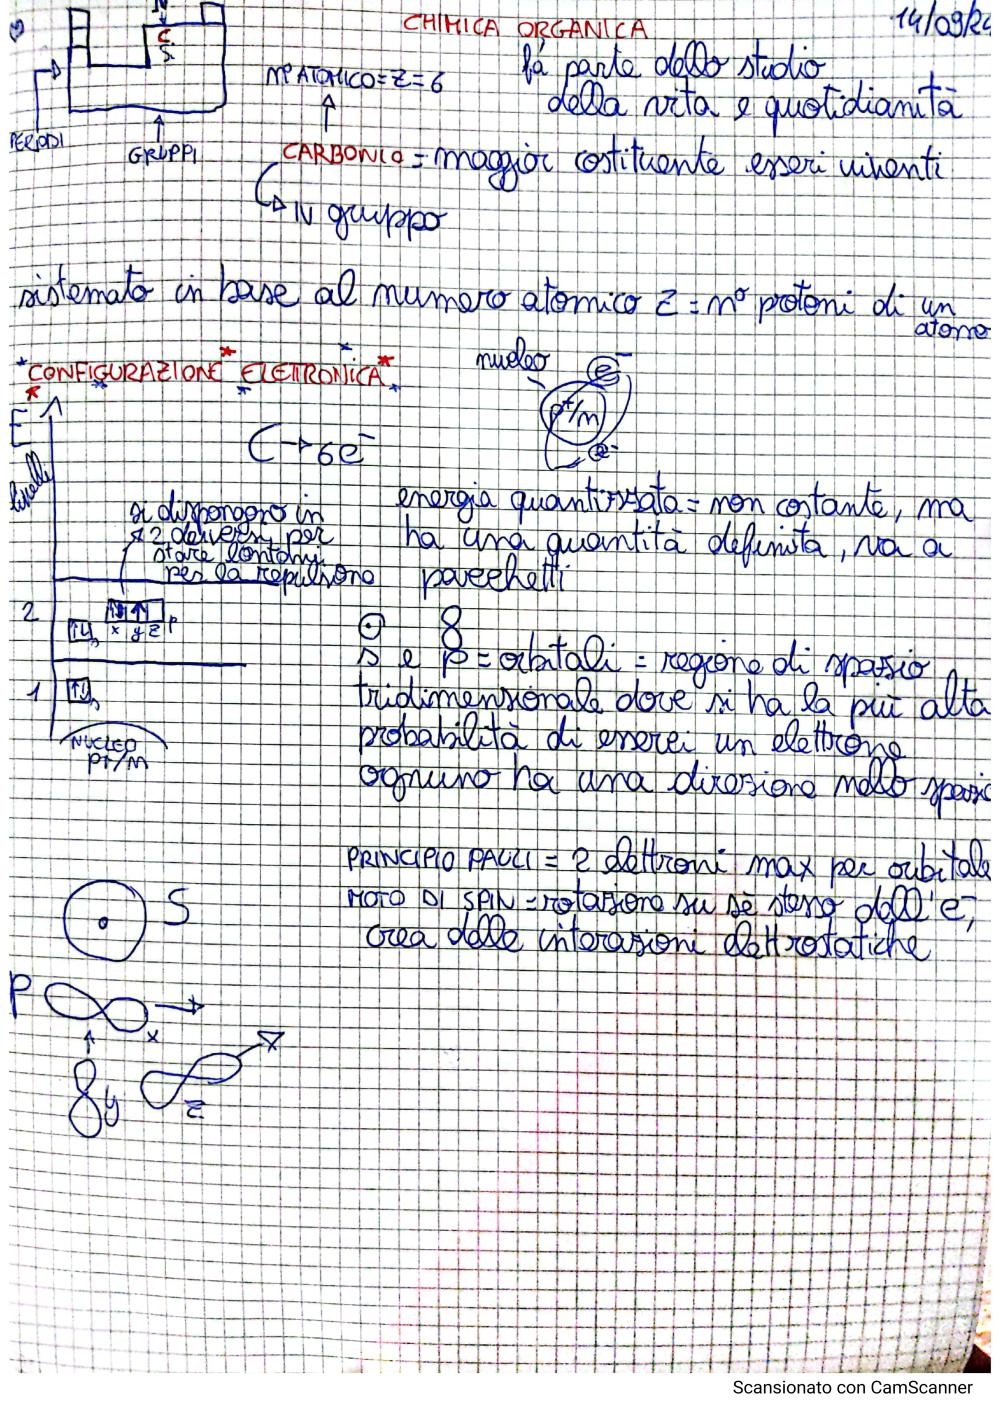 CHIMICA ORGANICA
14/09/24
fà parte dello studio
della vita e quotidianità
IV
C
Si
PERIODI
GRUPPI
n° ATOMICO = Z = 6
CARBONIO = maggior costituente esseri viventi
IV gruppo
sistemato in base al numero atomico Z = n° protoni di un
atomo
*CONFIGURAZIONE* ELETTRONICA*
nucleo
e-
p+/n
e-
E
livelli
C → 6e-
si dispongono in
per
stare lontani
per la repulsione
energia quantizzata = non costante, ma
ha una quantità definita, va a
pacchetti
2
s
x y z p
1
s
NUCLEO
p+/n
s e p = orbitali = regione di spazio
tridimensionale dove si ha la più alta
probabilità di esserci un elettrone
ognuno ha una direzione nello spazio
PRINCIPIO PAULI = 2 elettroni max per orbitale
MOTO DI SPIN = rotazione su sè stesso dell'e-,
crea delle interazioni elettrostatiche
S
P
x
y
z
Scansionato con CamScanner